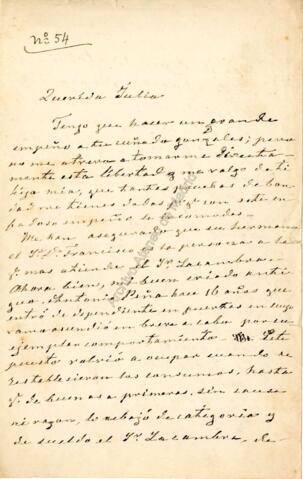 Nº 54
Querida Julia
Tengo que hacer un grande
empeño a tu cuñado Gonzales; pero
no me atrevo a tomarme directa-
mente esta libertad y me valgo de ti
hija mia, que tantas pruebas de bon-
dad me tienes dadas pª que con este en-
fadoso empeño le incomodes.
Me han asegurado que su hermano
el Sr D. Francisco es la persona a
qn mas atiende el Sr Lacambra.
Ahora bien, un buen criado anti-
guo, Antonio Peña hace 16 años que
entró de dependiente en puertas en cuyo
ramo ascendió en breve a cabo por su
ejemplar comportamiento. Este
puesto volvió a ocupar cuando se
restablecieron los consumos, hasta
qe de buenas a primeras, sin causa
ni razon, lo rebajó de categoria y
de sueldo el Sr Lacambra, de-